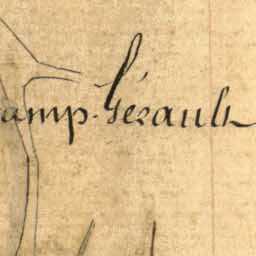 amp. Gérault